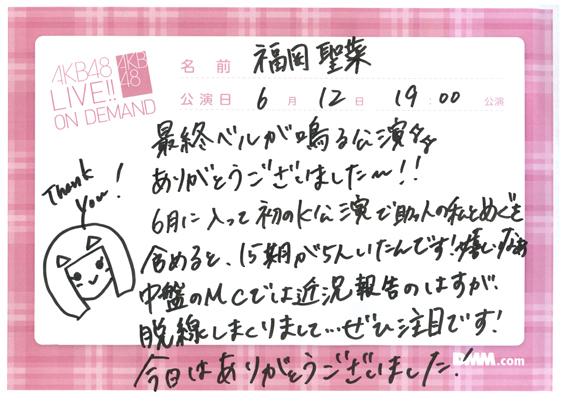 AKB48
LIVE!!
ON DEMAND
AKB
48
名前 福岡聖菜
公演日 6月 12日 19:00 公演
最終ベルが鳴る公演
ありがとうございました〜!!
Thank
you!
6月に入って初のK公演で助っ人の私とめぐを
含めると、15期が5人いたんです!嬉しいなあ
中盤のMCでは近況報告のはずが、
脱線しまくりまして…ぜひ注目です!
今日はありがとうございました!
DMM.com